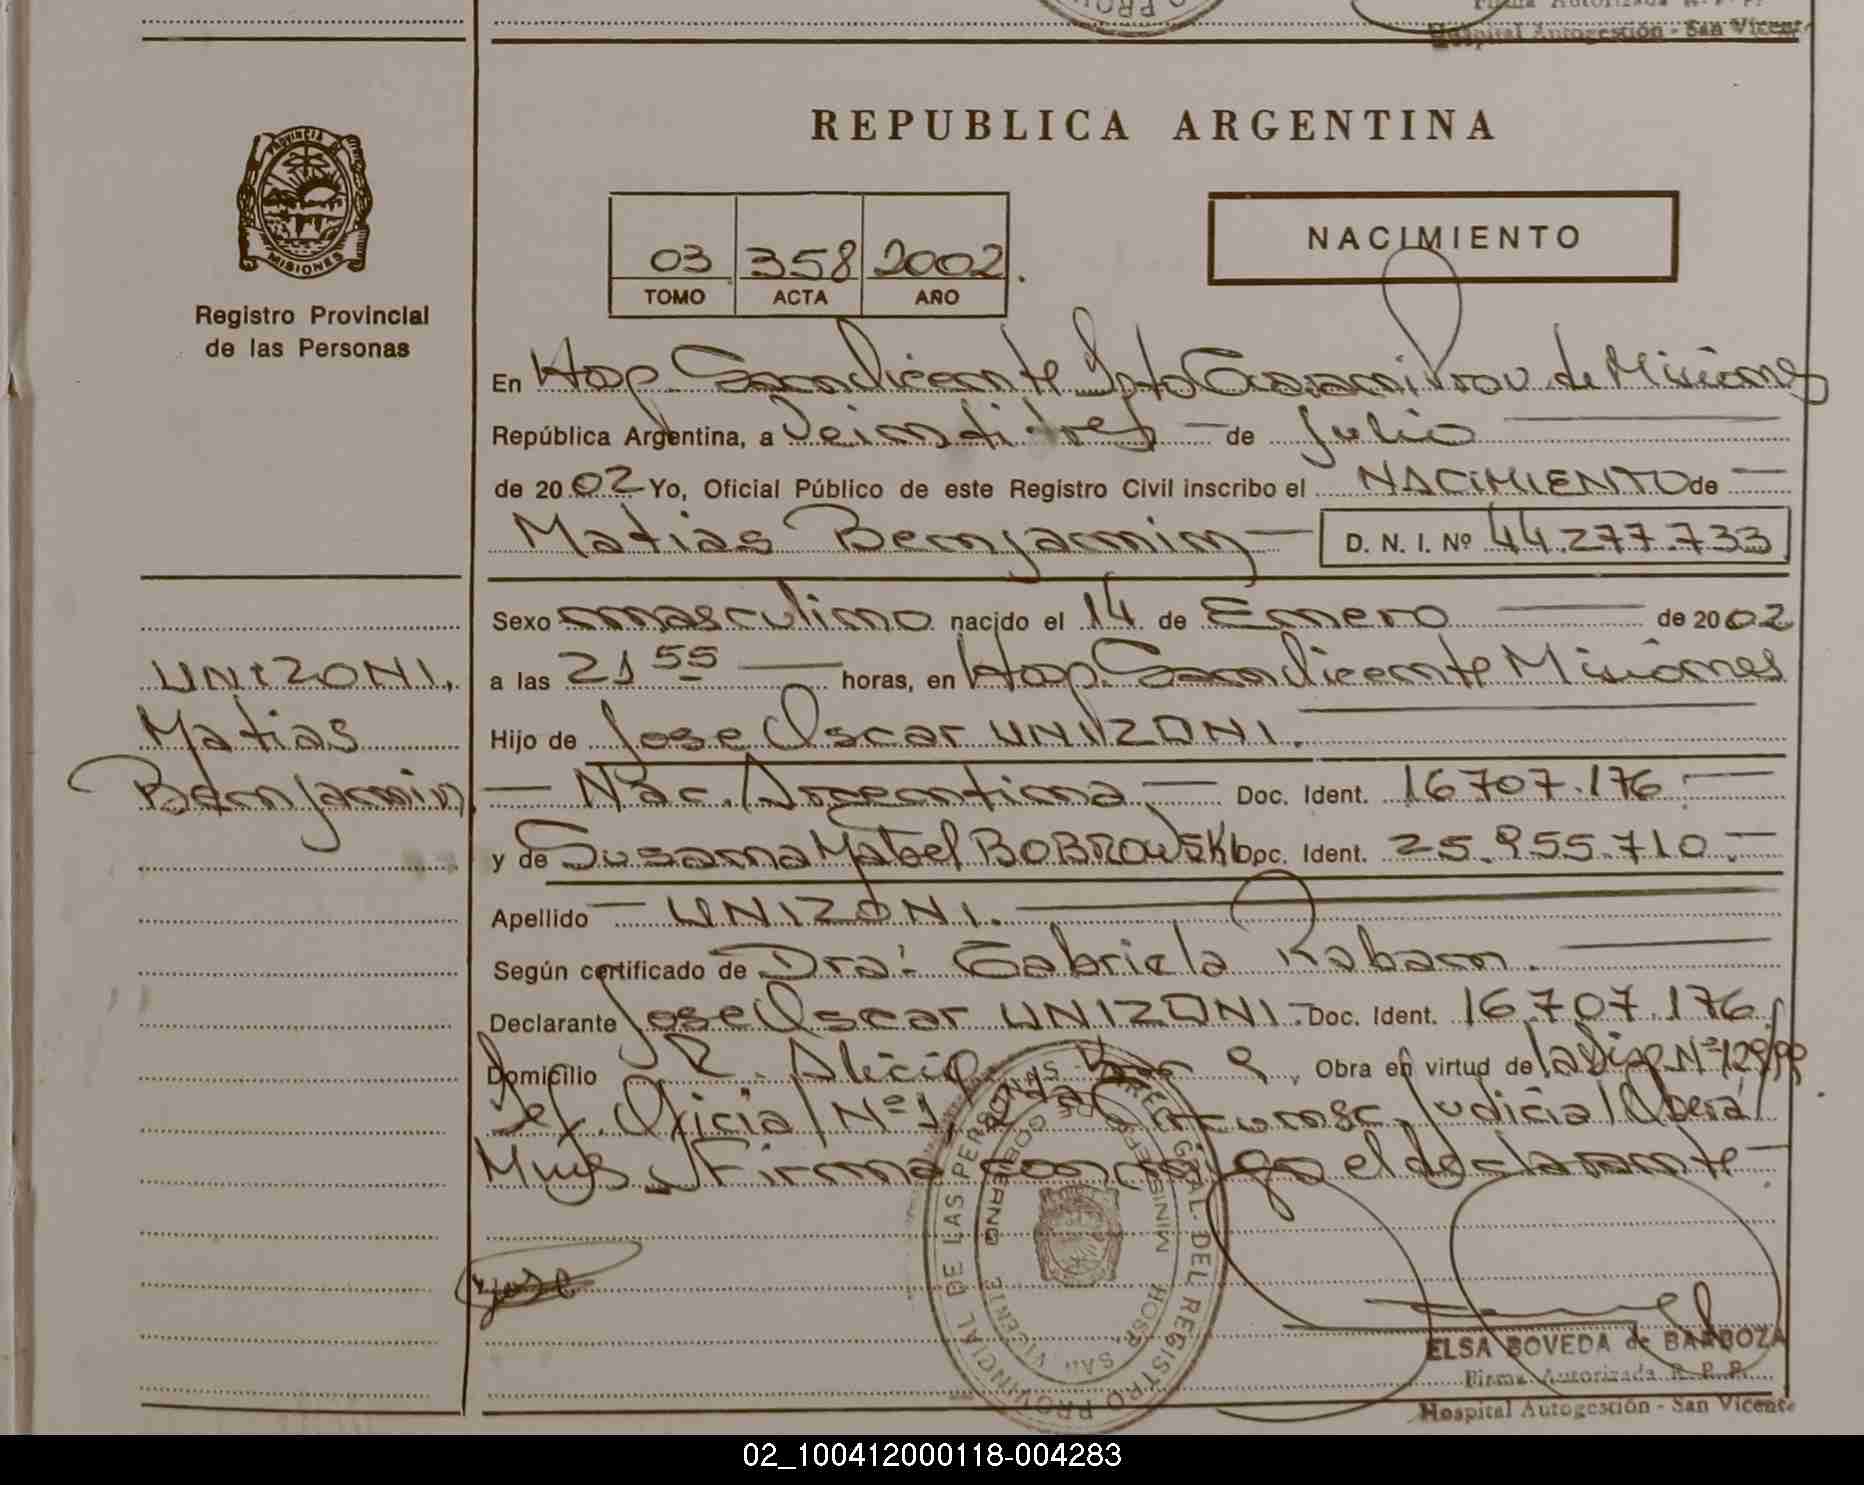 Hospital Autogestión - San Vicente
REPUBLICA ARGENTINA
PROVINCIA DE
MISIONES
Registro Provincial
de las Personas
03 358 2002.
TOMO ACTA AÑO
NACIMIENTO
En Hosp. San Vicente Dpto Guarani Prov. de Misiones
República Argentina, a Veintitres de Julio
de 2002 Yo, Oficial Público de este Registro Civil inscribo el NACIMIENTO de
Matias Benjamin D. N. I. Nº 44.277.733
Sexo masculino nacido el 14 de Enero de 2002
a las 21 55 horas, en Hosp. San Vicente Misiones
Hijo de Jose Oscar UNIZONI.
Nac. Argentina Doc. Ident. 16707.176
y de Susana Mabel BOBROWSKI Doc. Ident. 25.955.710
Apellido UNIZONI.
Según certificado de Dra: Gabriela Raban.
Declarante Jose Oscar UNIZONI. Doc. Ident. 16.707.176
Domicilio P. Alicia Km 9, Obra en virtud de la Disp. Nº 129/99
Def. Oficial Nº 1, 2da Circunsc. Judicial Obera
Mnes y Firma conmigo el declarante
UNIZONI,
Matias
Benjamin
Jose
PROVINCIAL DE LAS PERSONAS
DEL REGISTRO
GOBIERNO
HOSP. SAN VICENTE
ELSA BOVEDA de BARBOZA
Firma Autorizada R. P. P.
Hospital Autogestión - San Vicente
02_100412000118-004283